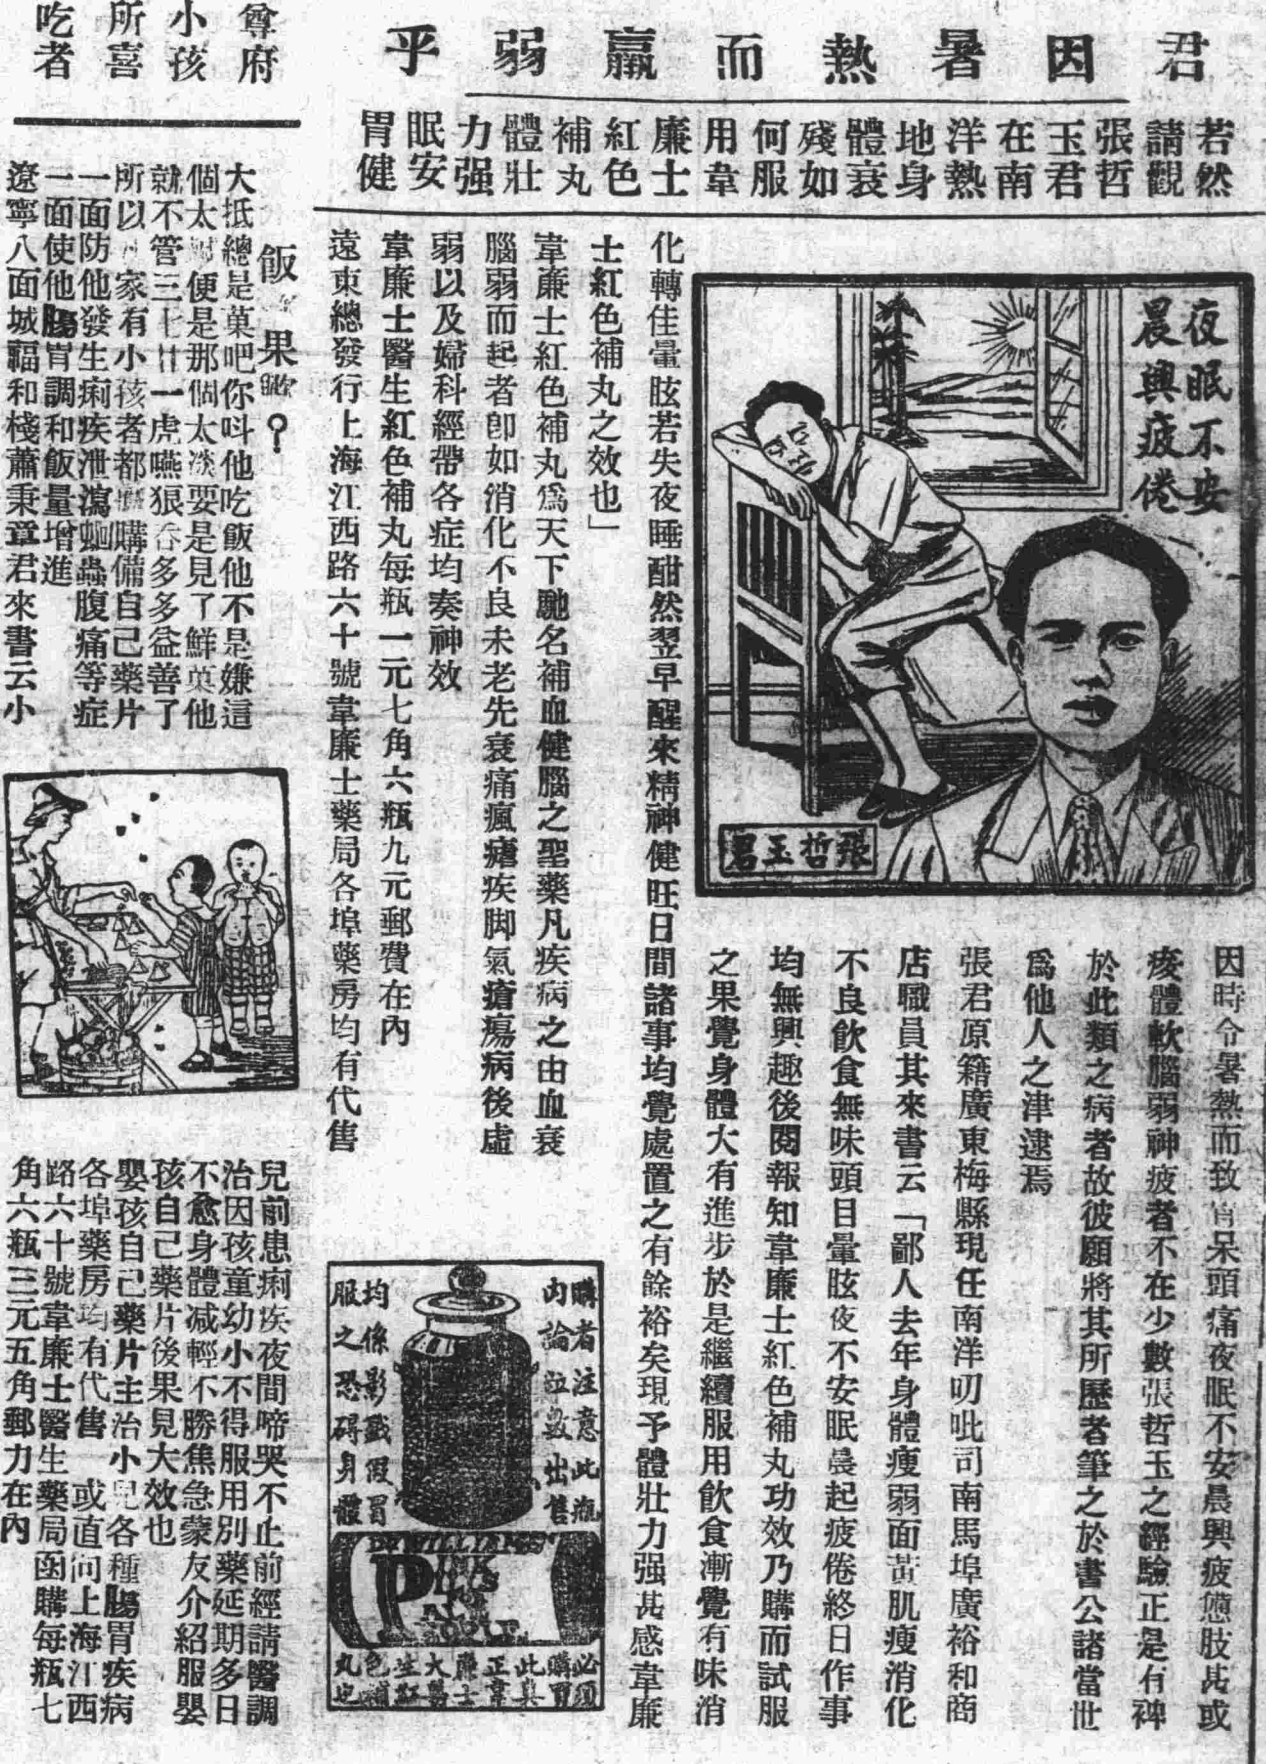 君因暑熱而羸弱乎
若然
請觀
張哲
玉君
在南
洋熱
地身
體衰
殘如
何服
用韋
廉士
紅色
補丸
體壯
力强
眠安
胃健
夜眠不安
晨興疲倦
張哲玉君
因時令暑熱而致 呆頭痛夜眠不安晨興疲憊肢甚或
痠體軟腦弱神疲者不在少數張哲玉之經驗正是有裨
於此類之病者故彼願將其所歷者筆之於書公諸當世
爲他人之津逮焉
張君原籍廣東梅縣現任南洋叨吡司南馬埠廣裕和商
店職員其來書云「鄙人去年身體瘦弱面黃肌瘦消化
不良飲食無味頭目暈眩夜不安眠晨起疲倦終日作事
均無興趣後閱報知韋廉士紅色補丸功效乃購而試服
之果覺身體大有進步於是繼續服用飲食漸覺有味消
化轉佳暈眩若失夜睡酣然翌早醒來精神健旺日間諸事均覺處置之有餘裕矣現予體壯力强甚感韋廉
士紅色補丸之效也」
韋廉士紅色補丸爲天下馳名補血健腦之聖藥凡疾病之由血衰
腦弱而起者卽如消化不良未老先衰痛瘋瘧疾脚氣瘡瘍病後虛
弱以及婦科經帶各症均奏神效
韋廉士醫生紅色補丸每瓶一元七角六瓶九元郵費在內
遠東總發行上海江西路六十號韋廉士藥局各埠藥房均有代售
購者注意此瓶
內論粒數出售
均係影戤假冒
服之恐碍身體
DR WILLIAMS'
PINK
PILLS
FOR
PALE
PEOPLE
必須購買此眞正韋廉士大醫生紅色補丸也
尊府
小孩
所喜
吃者
飯 果 ？
大抵總是菓吧你呌他吃飯他不是嫌這
個太 便是那個太淡要是見了鮮菓他
就不管三七廿一虎嚥狠吞多多益善了
所以 家有小孩者都 購備自己藥片
一面防他發生痢疾泄瀉蛔蟲腹痛等症
一面使他腸胃調和飯量增進
遼寧八面城福和棧蕭秉章君來書云小
兒前患痢疾夜間啼哭不止前經請醫調
治因孩童幼小不得服用別藥延期多日
不愈身體減輕不勝焦急蒙友介紹服嬰
孩自己藥片後果見大效也
嬰孩自己藥片主治小兒各種腸胃疾病
各埠藥房均有代售 或直向上海江西
路六十號韋廉士醫生藥局函購每瓶七
角六瓶三元五角郵力在內